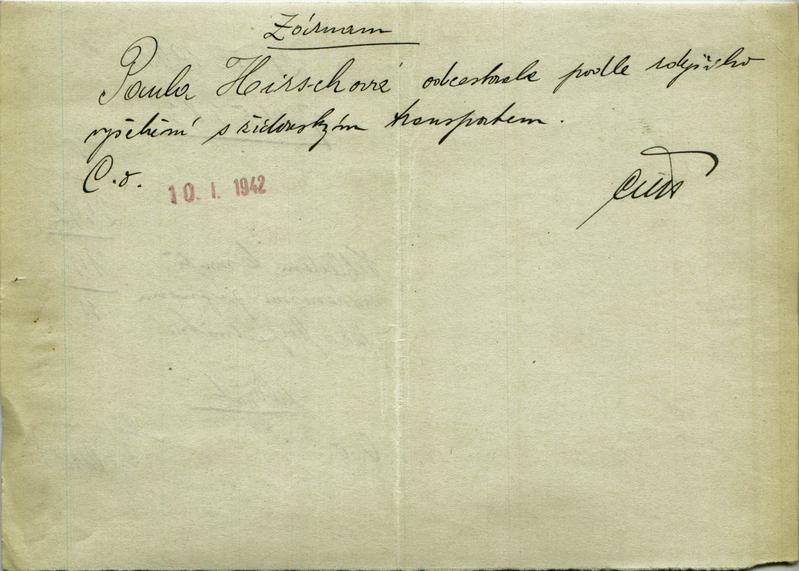 Záznam
Paula Hirschová odcestovala podle zdejšího
vyšetření s židovským transportem.
C. d. 10. I. 1942